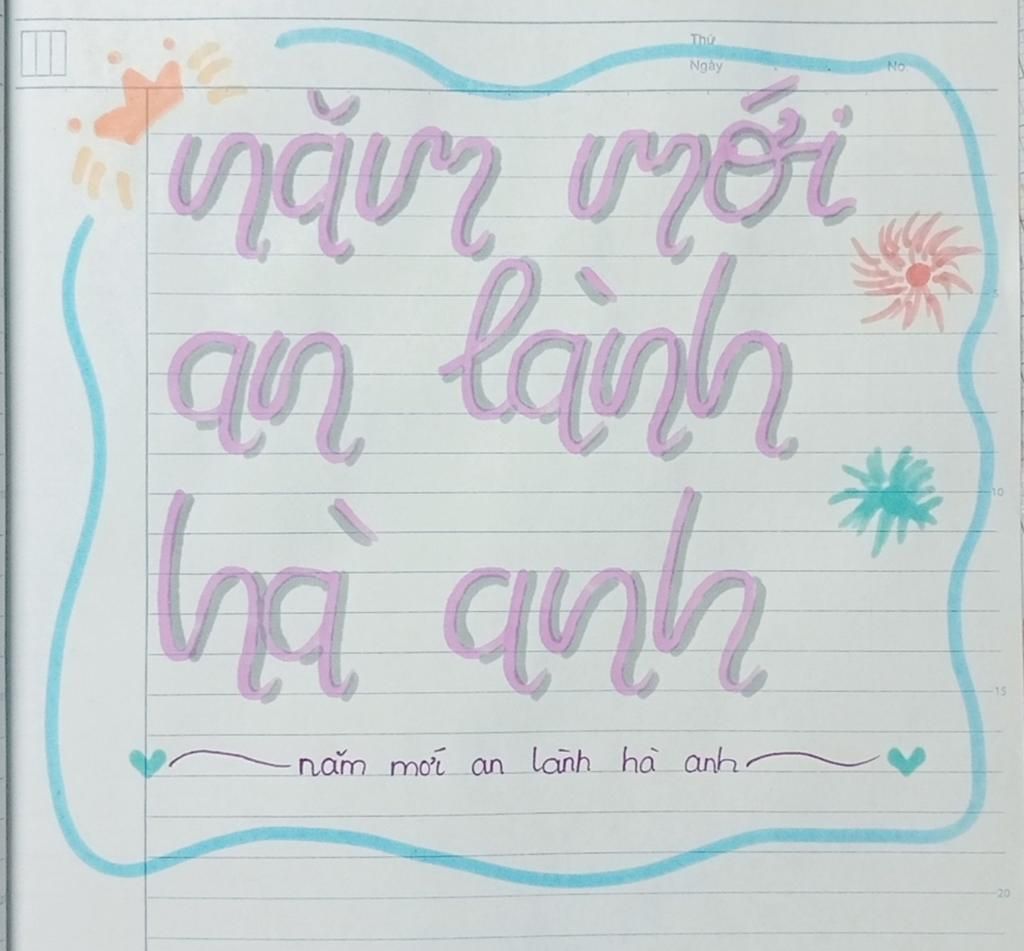 Thứ
Ngày
No.
năm mới
an lành
hà anh
năm mới an lành hà anh
5
10
15
20